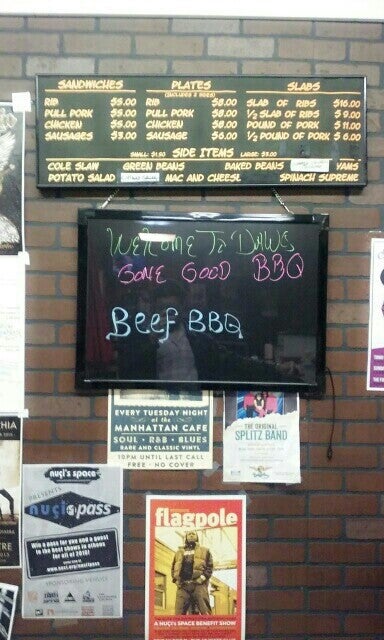 SANDWICHES
RIB $5.00
PULL PORK $5.00
CHICKEN $5.00
SAUSAGES $3.00
PLATES
(INCLUDES 2 SIDES)
RIB $8.00
PULL PORK $8.00
CHICKEN $8.00
SAUSAGE $6.00
SLABS
SLAB OF RIBS $16.00
1/2 SLAB OF RIBS $9.00
POUND OF PORK $11.00
1/2 POUND OF PORK $6.00
SMALL: $1.50 SIDE ITEMS LARGE: $3.00
COLE SLAW GREEN BEANS BAKED BEANS YAMS
POTATO SALAD MAC AND CHEESE SPINACH SUPREME
WELCOME TO DAWG
GONE GOOD BBQ
Beef BBQ
EVERY TUESDAY NIGHT
at the
MANHATTAN CAFE
SOUL · R&B · BLUES
RARE AND CLASSIC VINYL
10PM UNTIL LAST CALL
FREE · NO COVER
THE ORIGINAL
SPLITZ BAND
nuçi's space
PRESENTS
nuçi's pass
Win a pass for you and a guest
to the best shows in athens
for all of 2015!
flagpole
A NUÇI'S SPACE BENEFIT SHOW